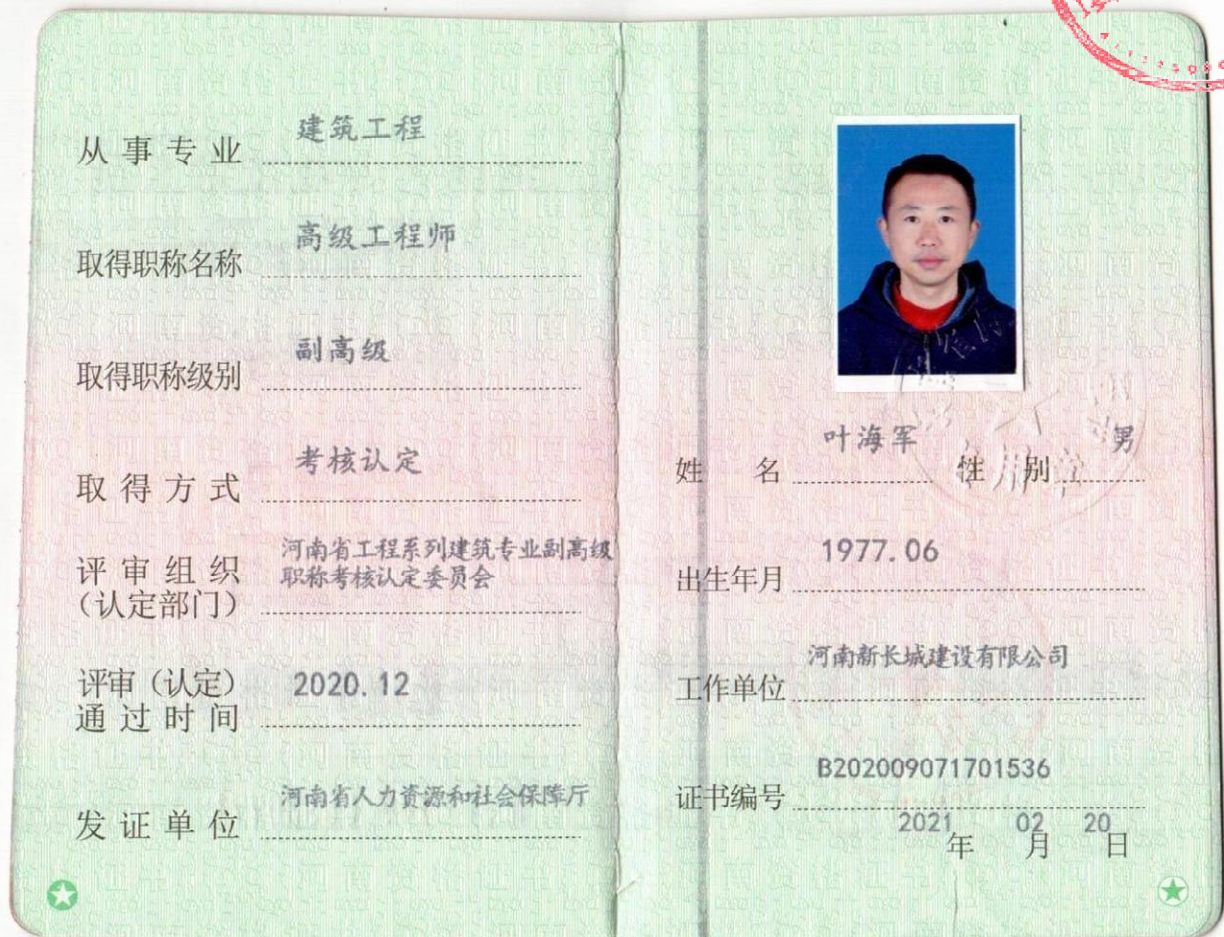 从事专业 建筑工程
取得职称名称 高级工程师
取得职称级别 副高级
取得方式 考核认定
评审组织 河南省工程系列建筑专业副高级
（认定部门） 职称考核认定委员会
评审（认定）
通过时间 2020.12
发证单位 河南省人力资源和社会保障厅
姓名 叶海军 性别 男
出生年月 1977.06
工作单位 河南新长城建设有限公司
证书编号 B202009071701536
2021年02月20日